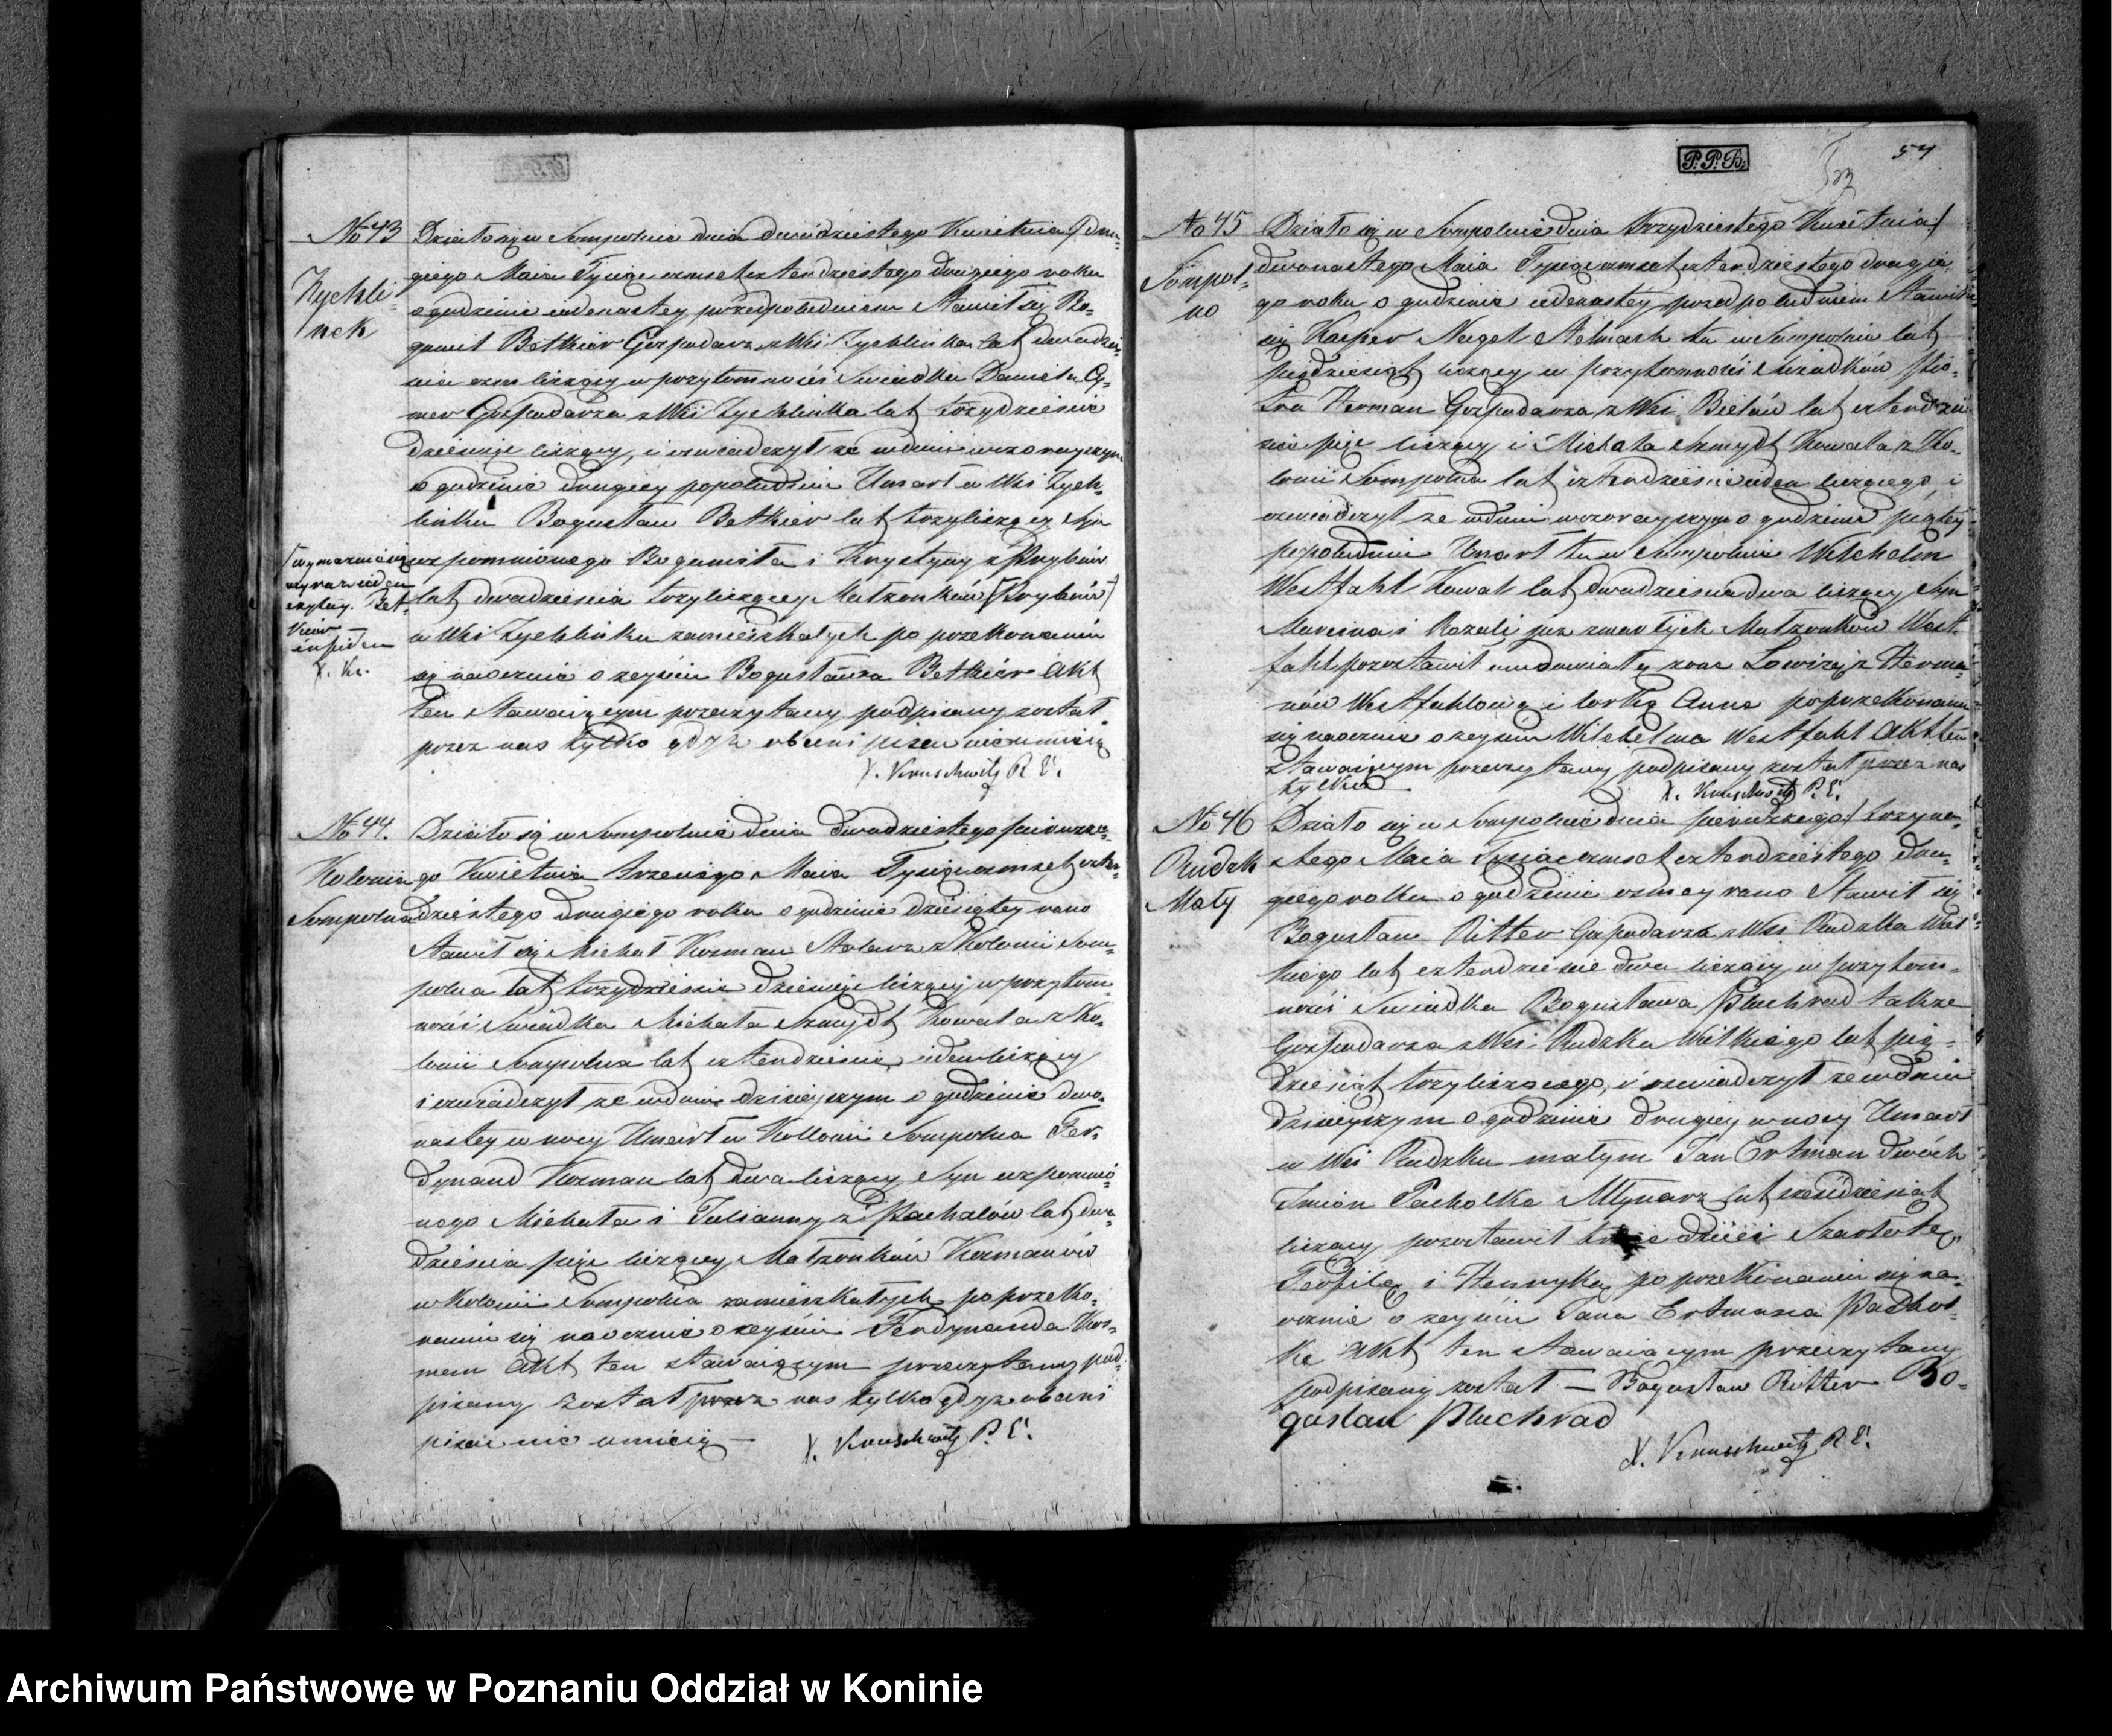 No 43
Zychli-
nek
Działo się w Sompolnie dnia dwudziestego Kwietnia / dru-
giego Maia Tysiąc osmset czterdziestego drugiego roku
o godzinie iedenastey przedpołudniem Stawił się Bo-
gumił Betkier Gospodarz z Wsi Zychlinka lat dwadzie-
scia osm liczący w przytomności Swiadka Daniela Cy-
mer Gospodarza z Wsi Zychlinka lat trzydziescie
dziewięć liczący, i oswiadczył że w dniu wczorayszym
o godzinie drugiey popołudniu Umarł w Wsi Zych-
linku Bogusław Betkier lat trzy liczący Syn
wzpomnionego Bogumiła i Krystyny z
lat dwadziescia trzy liczącey Małzonków
w Wsi Zychlinku zamieszkałych po przekonaniu
się naocznie o zeyściu Bogusława Betkier Akt
ten Stawaiącym przeczytany podpisany został
przez nas tylko gdyż obecni pisać nieumieią
X. Kruschwitz P. E.
czytay. Bet-
kier
X. Kr.
No 44.
Kolonia
Sompolna
Działo się w Sompolnie dnia dwudziestego pierwsze-
go Kwietnia trzeciego Maia Tysiąc osmset czter-
dziestego drugiego roku o godzinie dziesiątey rano
Stawił się Michał Kozman Stolarz z Kolonii Som-
polna lat trzydziescie dziewięć liczący w przytom-
ności Swiadka Michała Szmydt Kowala z Ko-
lonii Sompolna lat czterdziescie ieden liczący
i oswiadczył że w dniu dzisieyszym o godzinie dwu-
nastey w nocy Umarł w Kollonii Sompolna Fer-
dynand Kozman lat dwa liczący Syn wzpomnio-
nego Michała i Julianny z Pachalów lat dwa-
dziescia pięć liczącey Małzonków Kozmanów
w Kolonii Sompolna zamieszkałych po przeko-
naniu się naocznie o zeyściu Ferdynanda Koz-
man Akt ten stawaiącym przeczytany pod-
pisany został przez nas tylko gdyż obecni
pisać nie umieią — X. Kruschwitz P. E.
P. P. B.
57
No 45
Sompol-
no
Działo się w Sompolnie dnia trzydziestego Kwietnia /
dwunastego Maia Tysiąc osmset czterdziestego drugie-
go roku o godzinie iedenastey przed południem Stawił
się Kasper Nagel Stelmach tu w Sompolnie lat
pięćdziesiąt liczący w przytomności Swiadków Pio-
tra Herman Gospodarza z Wsi Bielaw lat czterdzie-
scie pięć liczący i Michała Szmydt Kowala z Ko-
lonii Sompolna lat czterdziescie ieden liczącego, i
oswiadczył że w dniu wczorayszym o godzinie piątey
popołudniu Umarł tu w Sompolnie Wilchelm
Westfahl Kowal lat dwadziescia dwa liczący Syn
Marcina i Rozalii już zmarłych Małzonków West-
fahl pozostawił owdowiałą zone Lowizę z Herma-
nów Westfahlową i corkę Anne po przekonaniu
się naocznie o zeyściu Wilchelma Westfahl Akt ten
stawaiącym przeczytany podpisany został przez nas
tylko X. Kruschwitz P. E.
No 46
Rudzk
Mały
Działo się w Sompolnie dnia pierwszego / trzyna-
stego Maia Tysiąc osmset czterdziestego dru-
giego roku o godzinie osmey rano Stawił się
Bogusław Ritter Gospodarz z Wsi Rudzka Wiel-
kiego lat czterdziescie dwa liczący w przytom-
ności Swiadka Bogusława Pluchrad takze
Gospodarza z Wsi Rudzka Wielkiego lat pię-
dziesiąt trzy liczącego, i oswiadczył że w dniu
dzisieyszym o godzinie drugiey w nocy Umarł
w Wsi Rudzku małym Jan Ertman dwóch
Imion Pachołka Młynarz lat sześćdziesiąt
liczący pozostawił troie dzieci Szarlotę,
Teofilę, i Hennykę, po przekonaniu się na-
ocznie o zeyściu Jana Ertmana Pachoł-
ka Akt ten stawaiącym przeczytany
podpisany został — Bogusław Ritter Bo-
gusław Pluchrad
X. Kruschwitz P. E.
Archiwum Państwowe w Poznaniu Oddział w Koninie